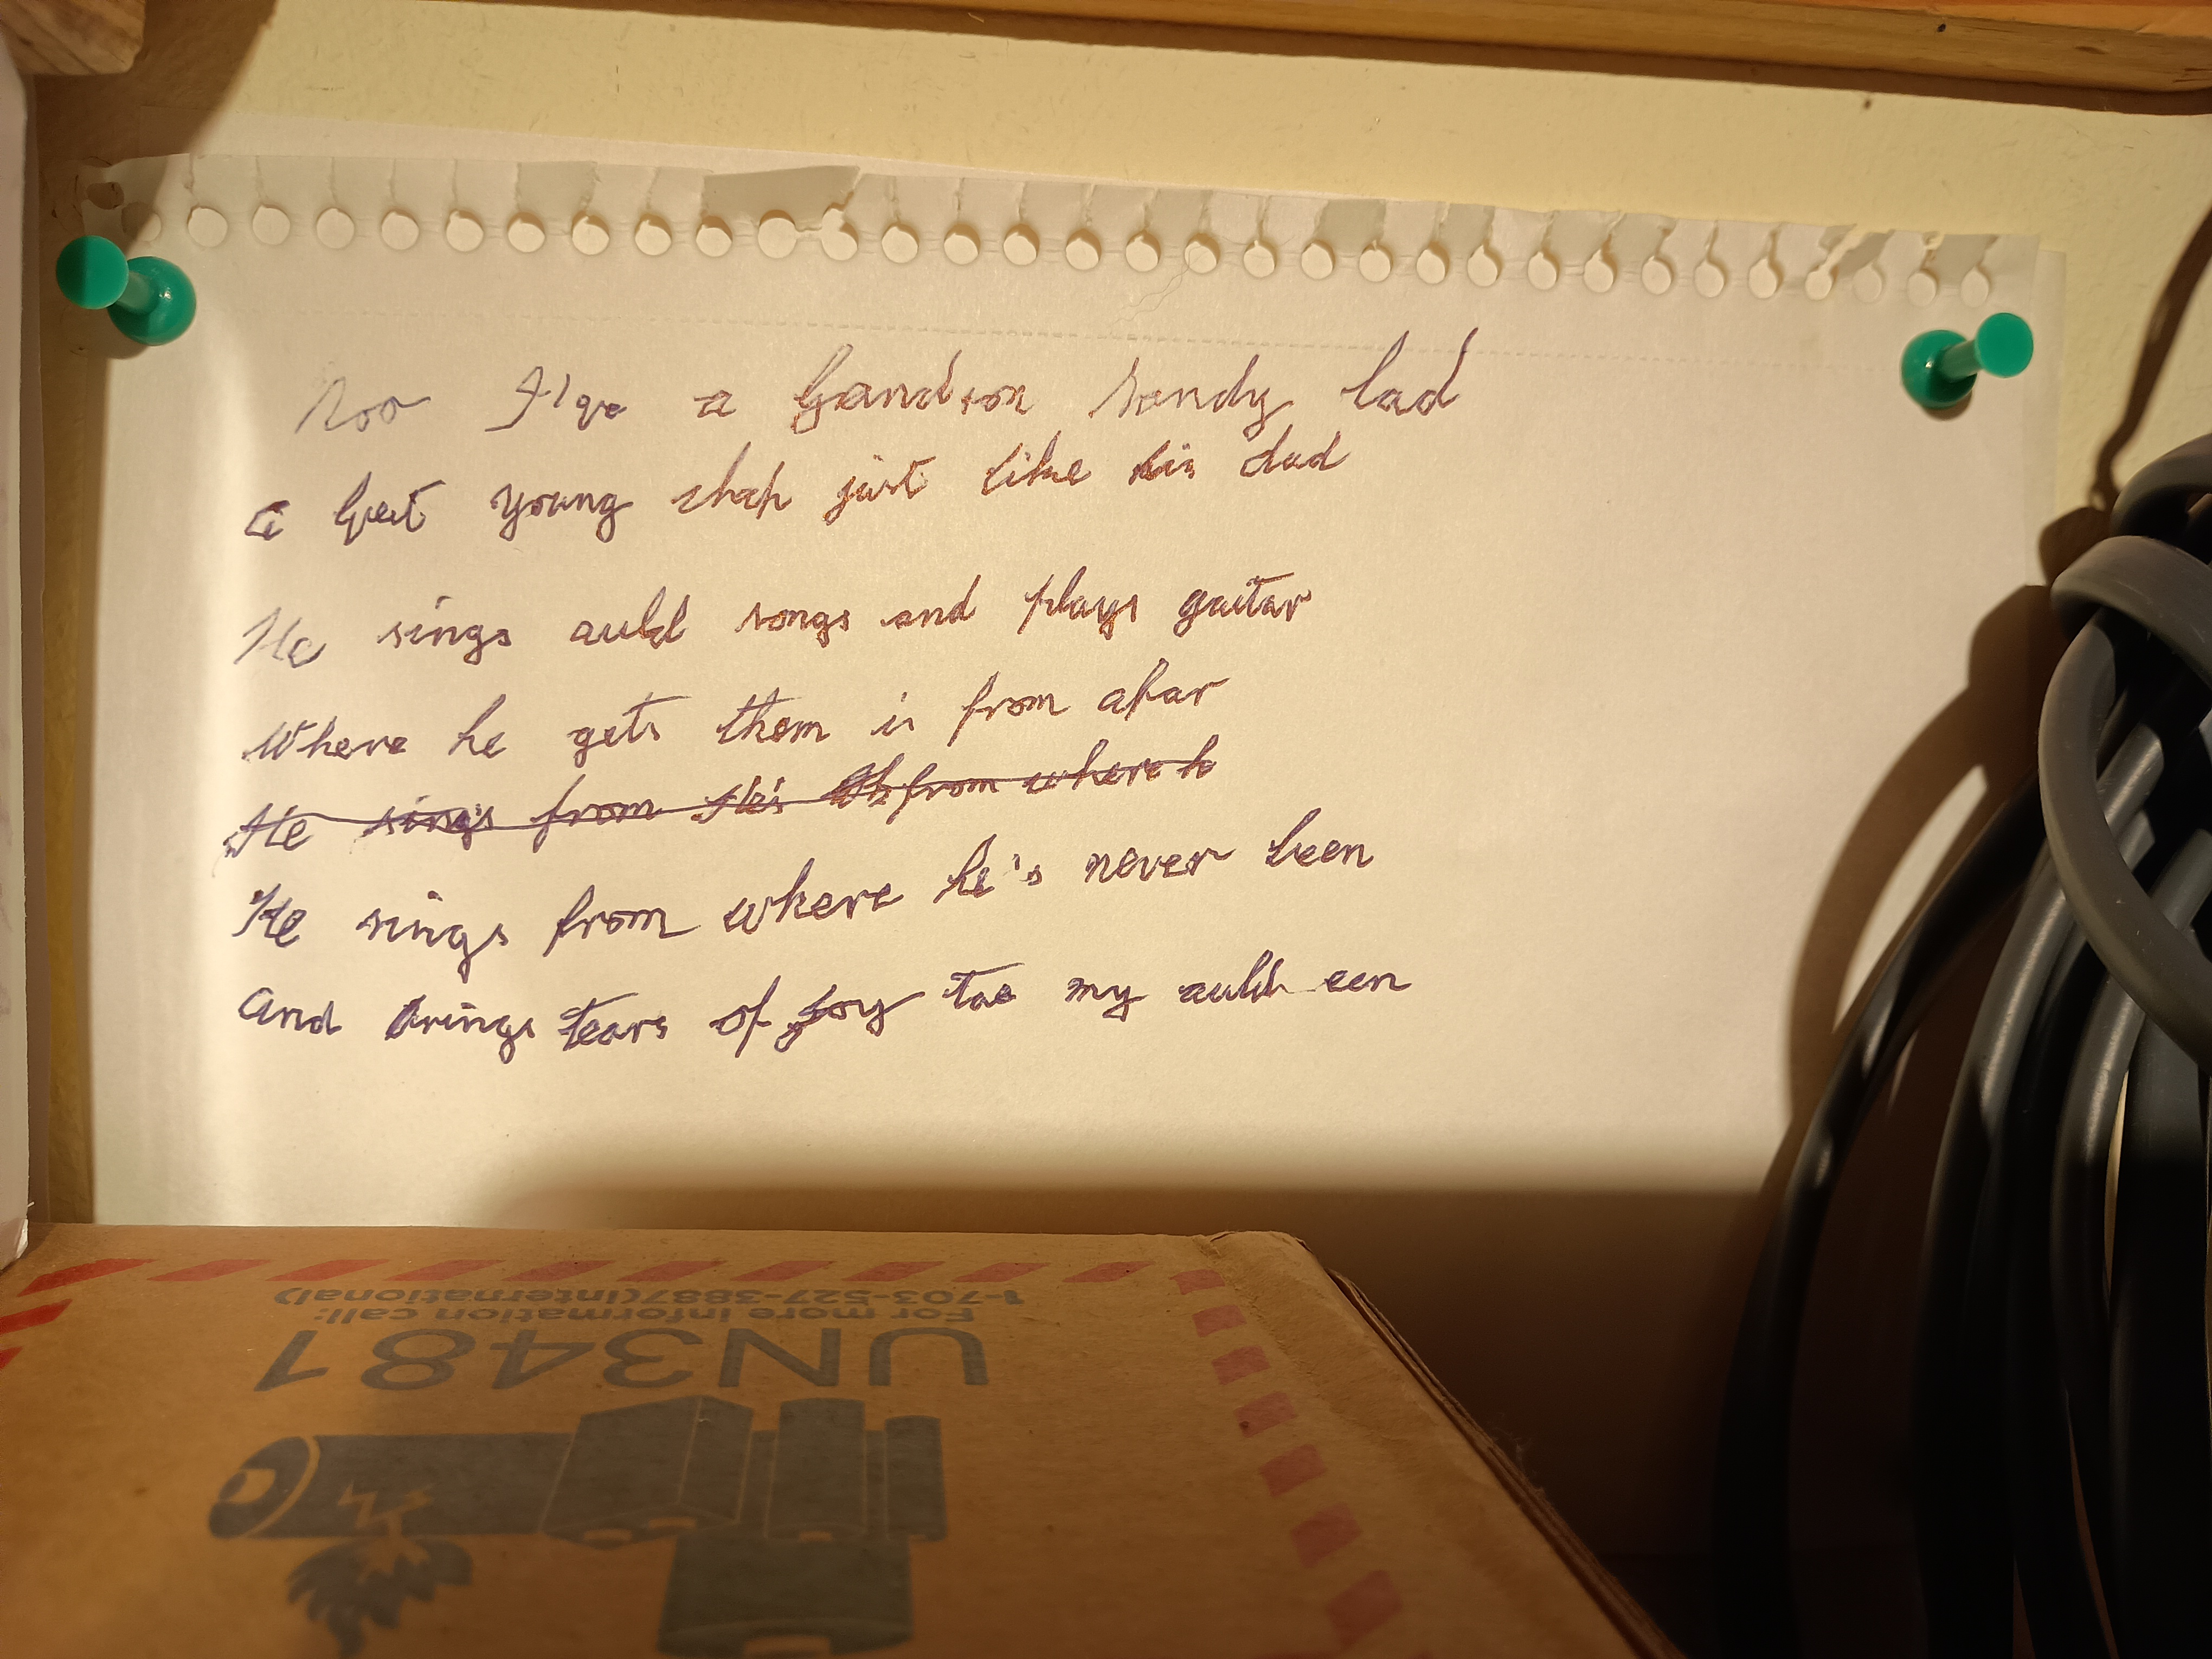 Noo I've a Grandson Sandy lad
a Great young chap just like his dad
He sings auld songs and plays guitar
Where he gets them is from afar
He sings from from where h
He sings from where he's never been
And brings tears of joy tae my auld een
UN3481
For more information call:
1-703-527-3887(International)